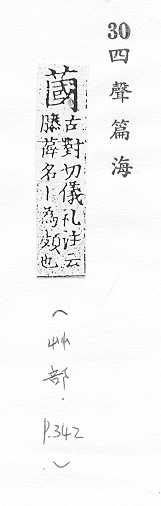 30 四聲篇海
蔮
古對切儀礼注云
滕薛名丨為頍也
（艸部．
p.342
．）